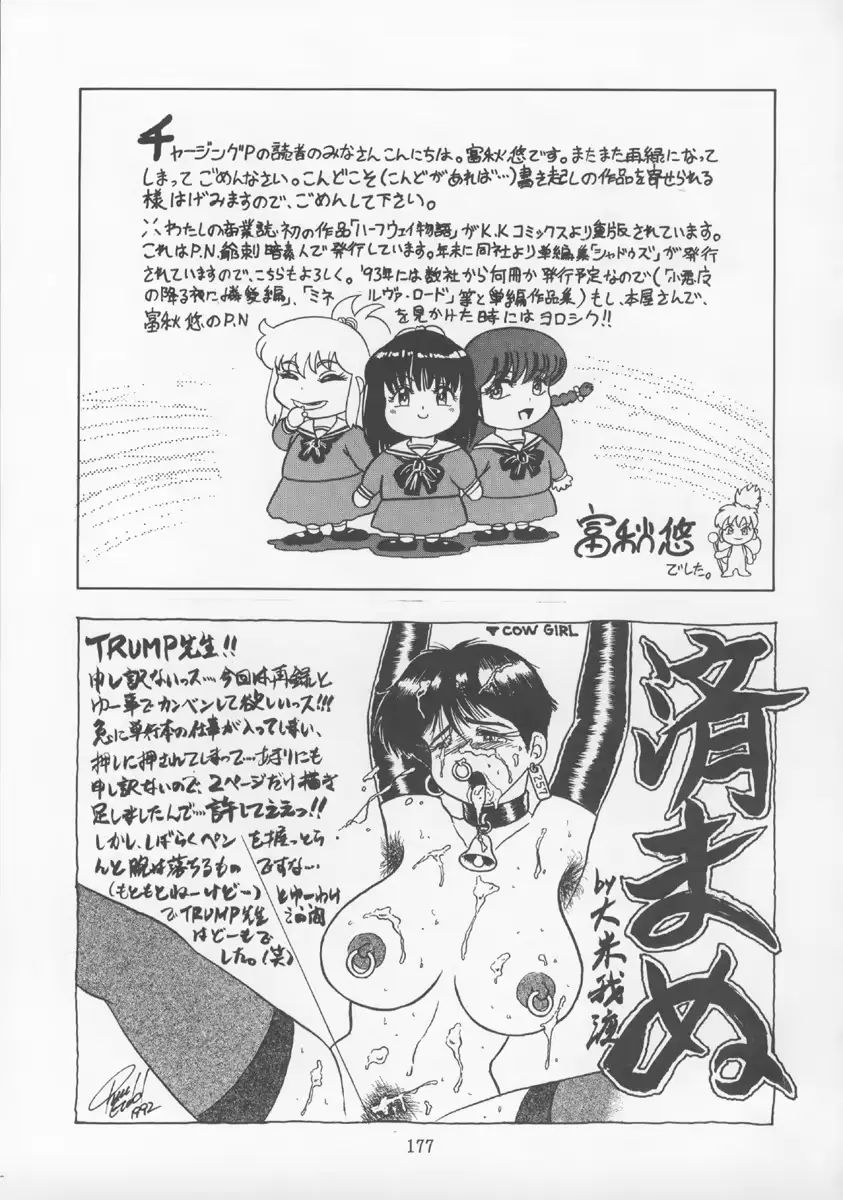 チャージングPの読者のみなさんこんにちは。富秋悠です。またまた再録になって
しまって ごめんなさい。こんどこそ(こんどがあれば…)書き起しの作品を寄せられる
様 はげみますので、ごめんして下さい。
※わたしの商業誌初の作品「ハーフウェイ物語」がK.Kコミックスより重版されています。
これはP.N. 暗素人で発行しています。年末に同社より単編集「シャドウズ」が発行
されていますので、こちらもよろしく。'93年には数社から何冊か発行予定なので(「小悪
の降る夜に 編」、「ミネルヴァ・ロード」等と単編作品集)もし、本屋さんで、
富秋悠のP.Nを見かけた時にはヨロシク!!
富秋悠
でした。
TRUMP先生!!
申し訳ないっス…今回は再録と
ゆー事でカンベンして欲しいっス!!!
急に単行本の仕事が入ってしまい、
押しに押されてしまって…あまりにも
申し訳ないので、2ページだけ描き
足しましたんで…許してえぇっ!!
しかし、しばらくペンを握っとら
んと腕は落ちるものですな…
(もともとねーけどー)とゆーわけ
でTRUMP先生
はどーもで
した。(笑)
♥COW GIRL
257
済まぬ
by大米我
1992
177